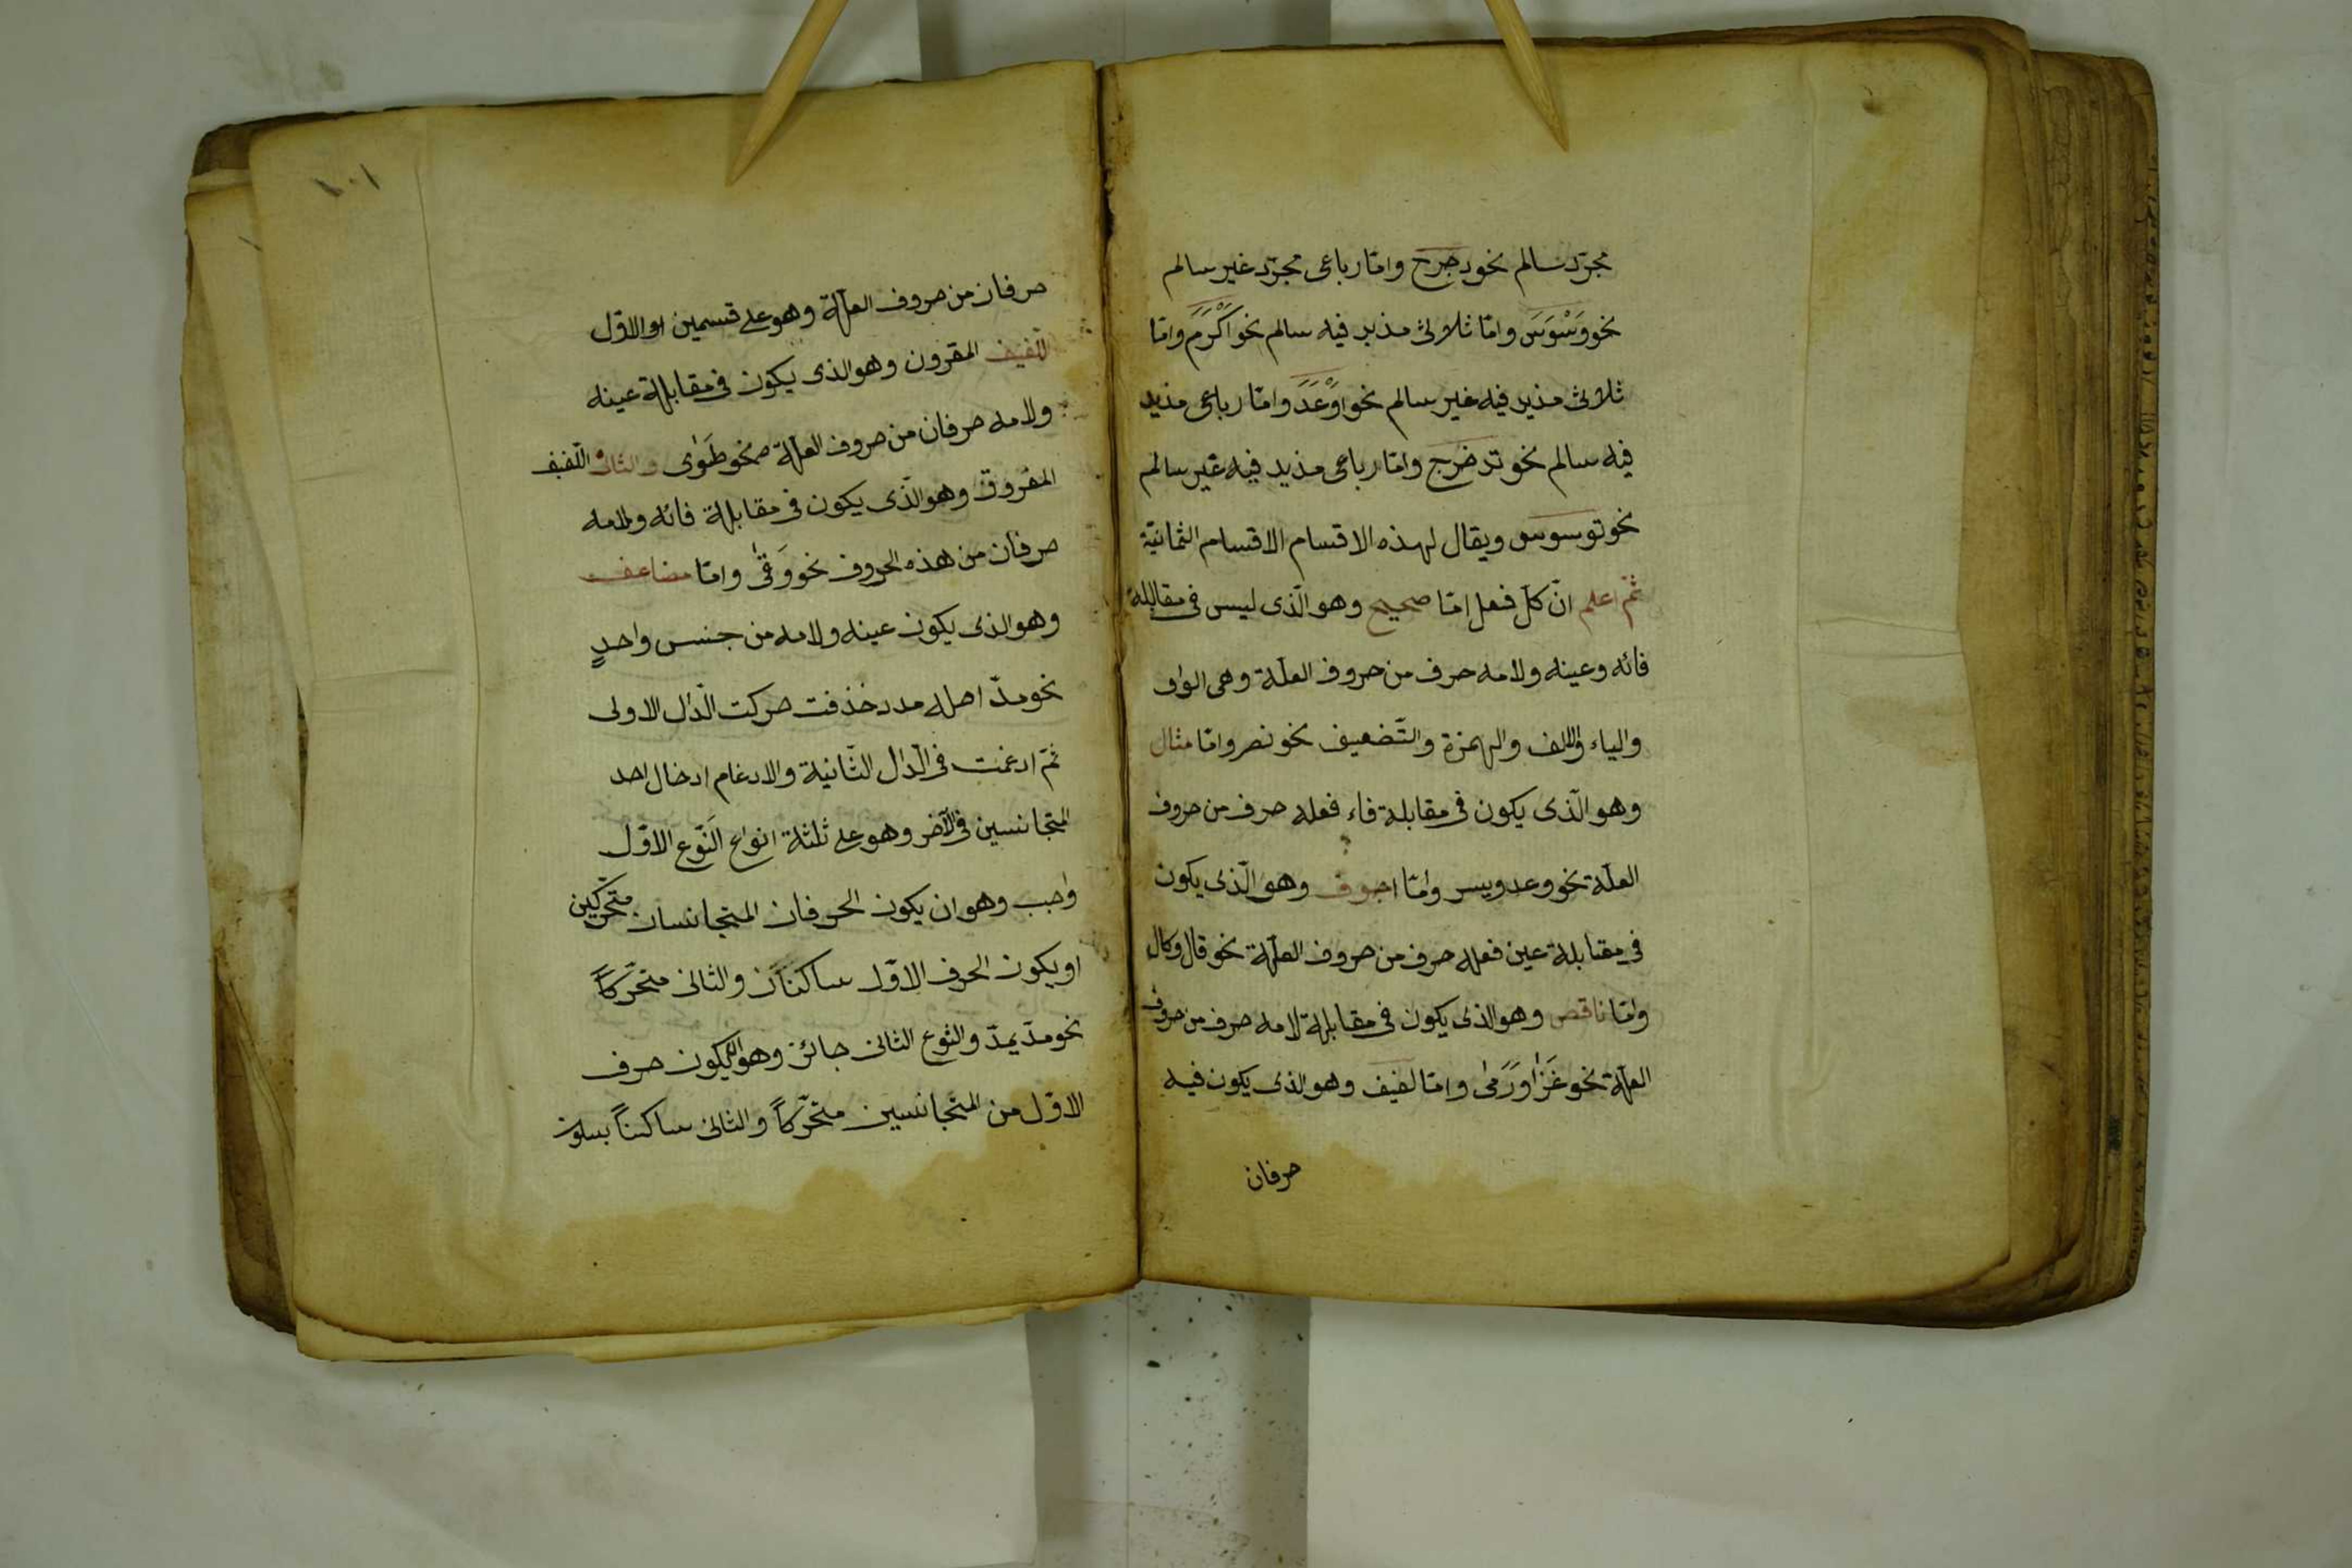 مجرّد سالم نحو دحرج وامّا رباعى مجرّد غير سالم
نحو وَسْوَسَ وامّا ثلاثى مذيد فيه سالم نحو اَكْرَمَ وامّا
ثلاثى مذيد فيه غير سالم نحو اَوْعَدَ وامّا رباعى مذيد
فيه سالم نحو تدخرج وامّا رباعى مذيد فيه غير سالم
نحو توسوس ويقال لهذه الاقسام الاقسام الثمانيّة
ثمّ اعلم انّ كلّ فعل امّا صحيح وهو الّذى ليس فى مقابلة
فائه وعينه ولامه حرف من حروف العلّة وهى الواو
والياء والالف والهمزة والتّضعيف نحو نصر وامّا مثال
وهو الّذى يكون فى مقابلة فاء فعله حرف من حروف
العلّة نحو وعد ويسر وامّا اجوف وهو الّذى يكون
فى مقابلة عين فعله حرف من حروف العلّة نحو قال وكال
وامّا ناقص وهو الذى يكون فى مقابلة لامه حرف من حروف
العلّة نحو غَزَا ورَمَى وامّا لفيف وهو الذى يكون فيه
حرفان
١٠١
حرفان من حروف العلّة وهو على قسمين الاوّل
اللّفيف المقرون وهو الذى يكون فى مقابلة عينه
ولامه حرفان من حروف العلّة نحو طَوٰى والثانى اللّفيف
المفروق وهو الّذى يكون فى مقابلة فائه ولامه
حرفان من هذه الحروف نحو وَقٰى وامّا مضاعف
وهو الذى يكون عينه ولامه من جنس واحدٍ
نحو مدّ اصله مدد خذفت حركت الدّال الاولى
ثمّ ادغمت فى الدّال الثّانية والادغام ادخال احد
المتجانسين فى الآخر وهو على ثلثة انواع النّوع الاوّل
واجب وهو ان يكون الحرفان المتجانسان متحرّكين
او يكون الحرف الاوّل ساكناً والثانى متحرّكاً
نحو مدّ يمدّ والنّوع الثانى جائز وهو ان يكون حرف
الاوّل من المتجانسين متحرّكاً والثانى ساكناً بسكون